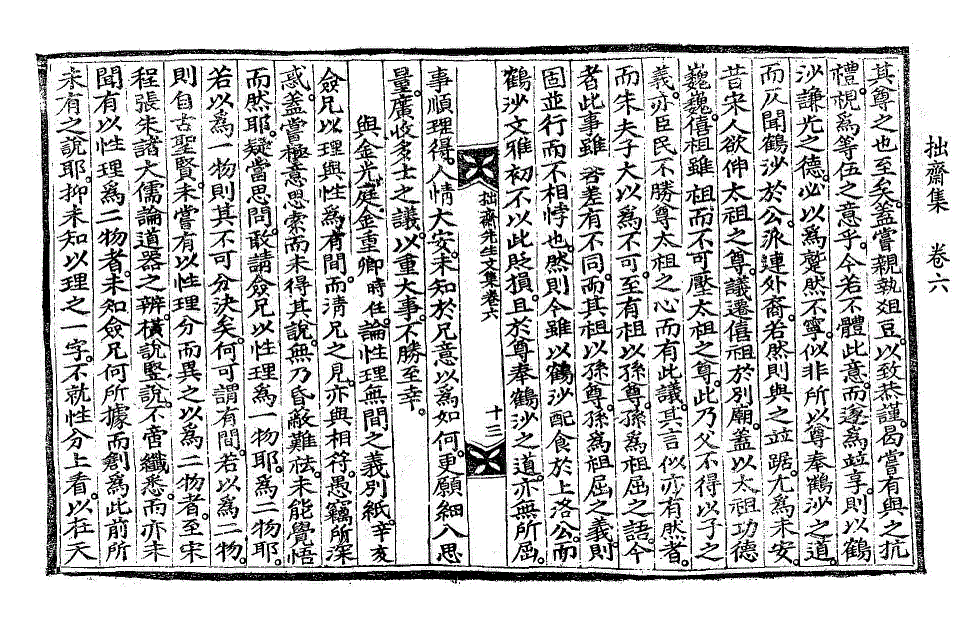 拙齋集　卷六
其尊之也至矣。蓋嘗親執俎豆。以致恭謹。曷嘗有與之抗
禮。視爲等伍之意乎。今若不體此意。而遂爲並享。則以鶴
沙謙光之德。必以爲蹙然不寧。似非所以尊奉鶴沙之道。
而仄聞鶴沙於公。派連外裔。若然則與之並踞。尤爲未安。
昔宋人欲伸太祖之尊。議遷僖祖於別廟。蓋以太祖功德
巍巍。僖祖雖祖。而不可壓太祖之尊。此乃父不得以子之
義。亦臣民不勝尊太祖之心而有此議。其言似亦有然者。
而朱夫子大以爲不可。至有祖以孫尊。孫爲祖屈之語。今
者此事雖　差有不同。而其祖以孫尊。孫爲祖屈之義。則
固並行而不相悖也。然則今雖以鶴沙配食於上洛公。而
鶴沙文雅初不以此貶損。且於尊奉鶴沙之道。亦無所屈。
拙齋先生文集卷六　十三
事順理得。人情大安。未知於兄意以爲如何。更願細入思
量。廣收多士之議。以重大事。不勝至幸。
與金光庭金重卿時任。論性理無間之義別紙。辛亥
僉兄以理與性爲有間。而淸兄之見。亦與相符。愚竊所深
惑。蓋嘗極意思索而未得其說。無乃昏蔽難祛。未能覺悟
而然耶。疑當思問。敢請僉兄以性理爲一物耶。爲二物耶。
若以爲一物則其不可分決矣。何可謂有間。若以爲二物。
則自古聖賢。未嘗有以性理分而異之以爲二物者。至宋
程張朱諸大儒論道器之辨。橫說竪說。不啻纖悉。而亦未
聞有以性理爲二物者。未知僉兄何所據而創爲此前所
未有之說耶。抑未知以理之一字。不就性分上看。以在天